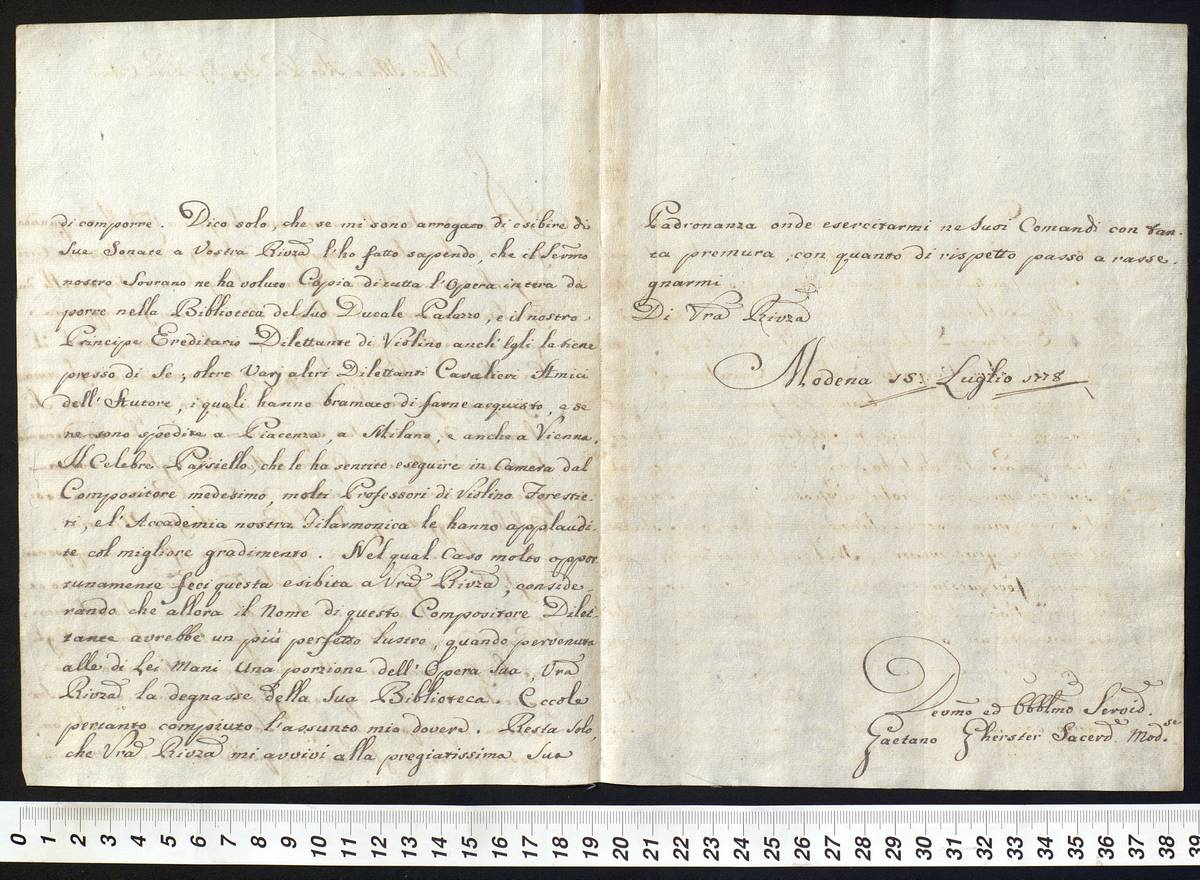 di comporre. Dico solo, che se mi sono arrogato di esibire di
Sue Sonate a Vostra Rivza l'ho fatto sapendo, che il Sermo
nostro Sovrano ne ha voluto Copia di tutta l'Opera intera da
porre nella Biblioteca del suo Ducale Palazzo, e il nostro
Principe Ereditario Dilettante di Violino anch'Egli la tiene
presso di Se; oltre Varj altri Dilettanti Cavalieri Amici
dell'Autore, i quali hanno bramato di farne acquisto, e se
ne sono spedite a Piacenza, a Milano, e anche a Vienna.
Il Celebre Paisiello, che le ha sentite eseguire in Camera dal
Compositore medesimo, molti Professori di Violino Forestie-
ri, e l'Accademia nostra Filarmonica le hanno applaudi-
te col migliore gradimento. Nel qual Caso molto oppor-
tunamente feci questa esibita a Vra Rivza, conside-
rando che allora il Nome di questo Compositore Dilet-
tante avrebbe un più perfetto lustro, quando pervenuta
alle di Lei Mani Una porzione dell'Opera Sua, Vra
Rivza la degnasse della Sua Biblioteca. Eccole
pertanto compiuto l'assunto mio dovere. Resta solo,
che Vra Rivza mi avvivi alla pregiatissima Sua
Padronanza onde esercitarmi ne Suoi Comandi con tan-
ta premura, con quanto di rispetto passo a rasse-
gnarmi
Di Vra Rivza
Modena 15. Luglio 1778
Devmo ed Obblmo Servide
Gaetano Gherster Sacerde Modse
0 1 2 3 4 5 6 7 8 9 10 11 12 13 14 15 16 17 18 19 20 21 22 23 24 25 26 27 28 29 30 31 32 33 34 35 36 37 38 39